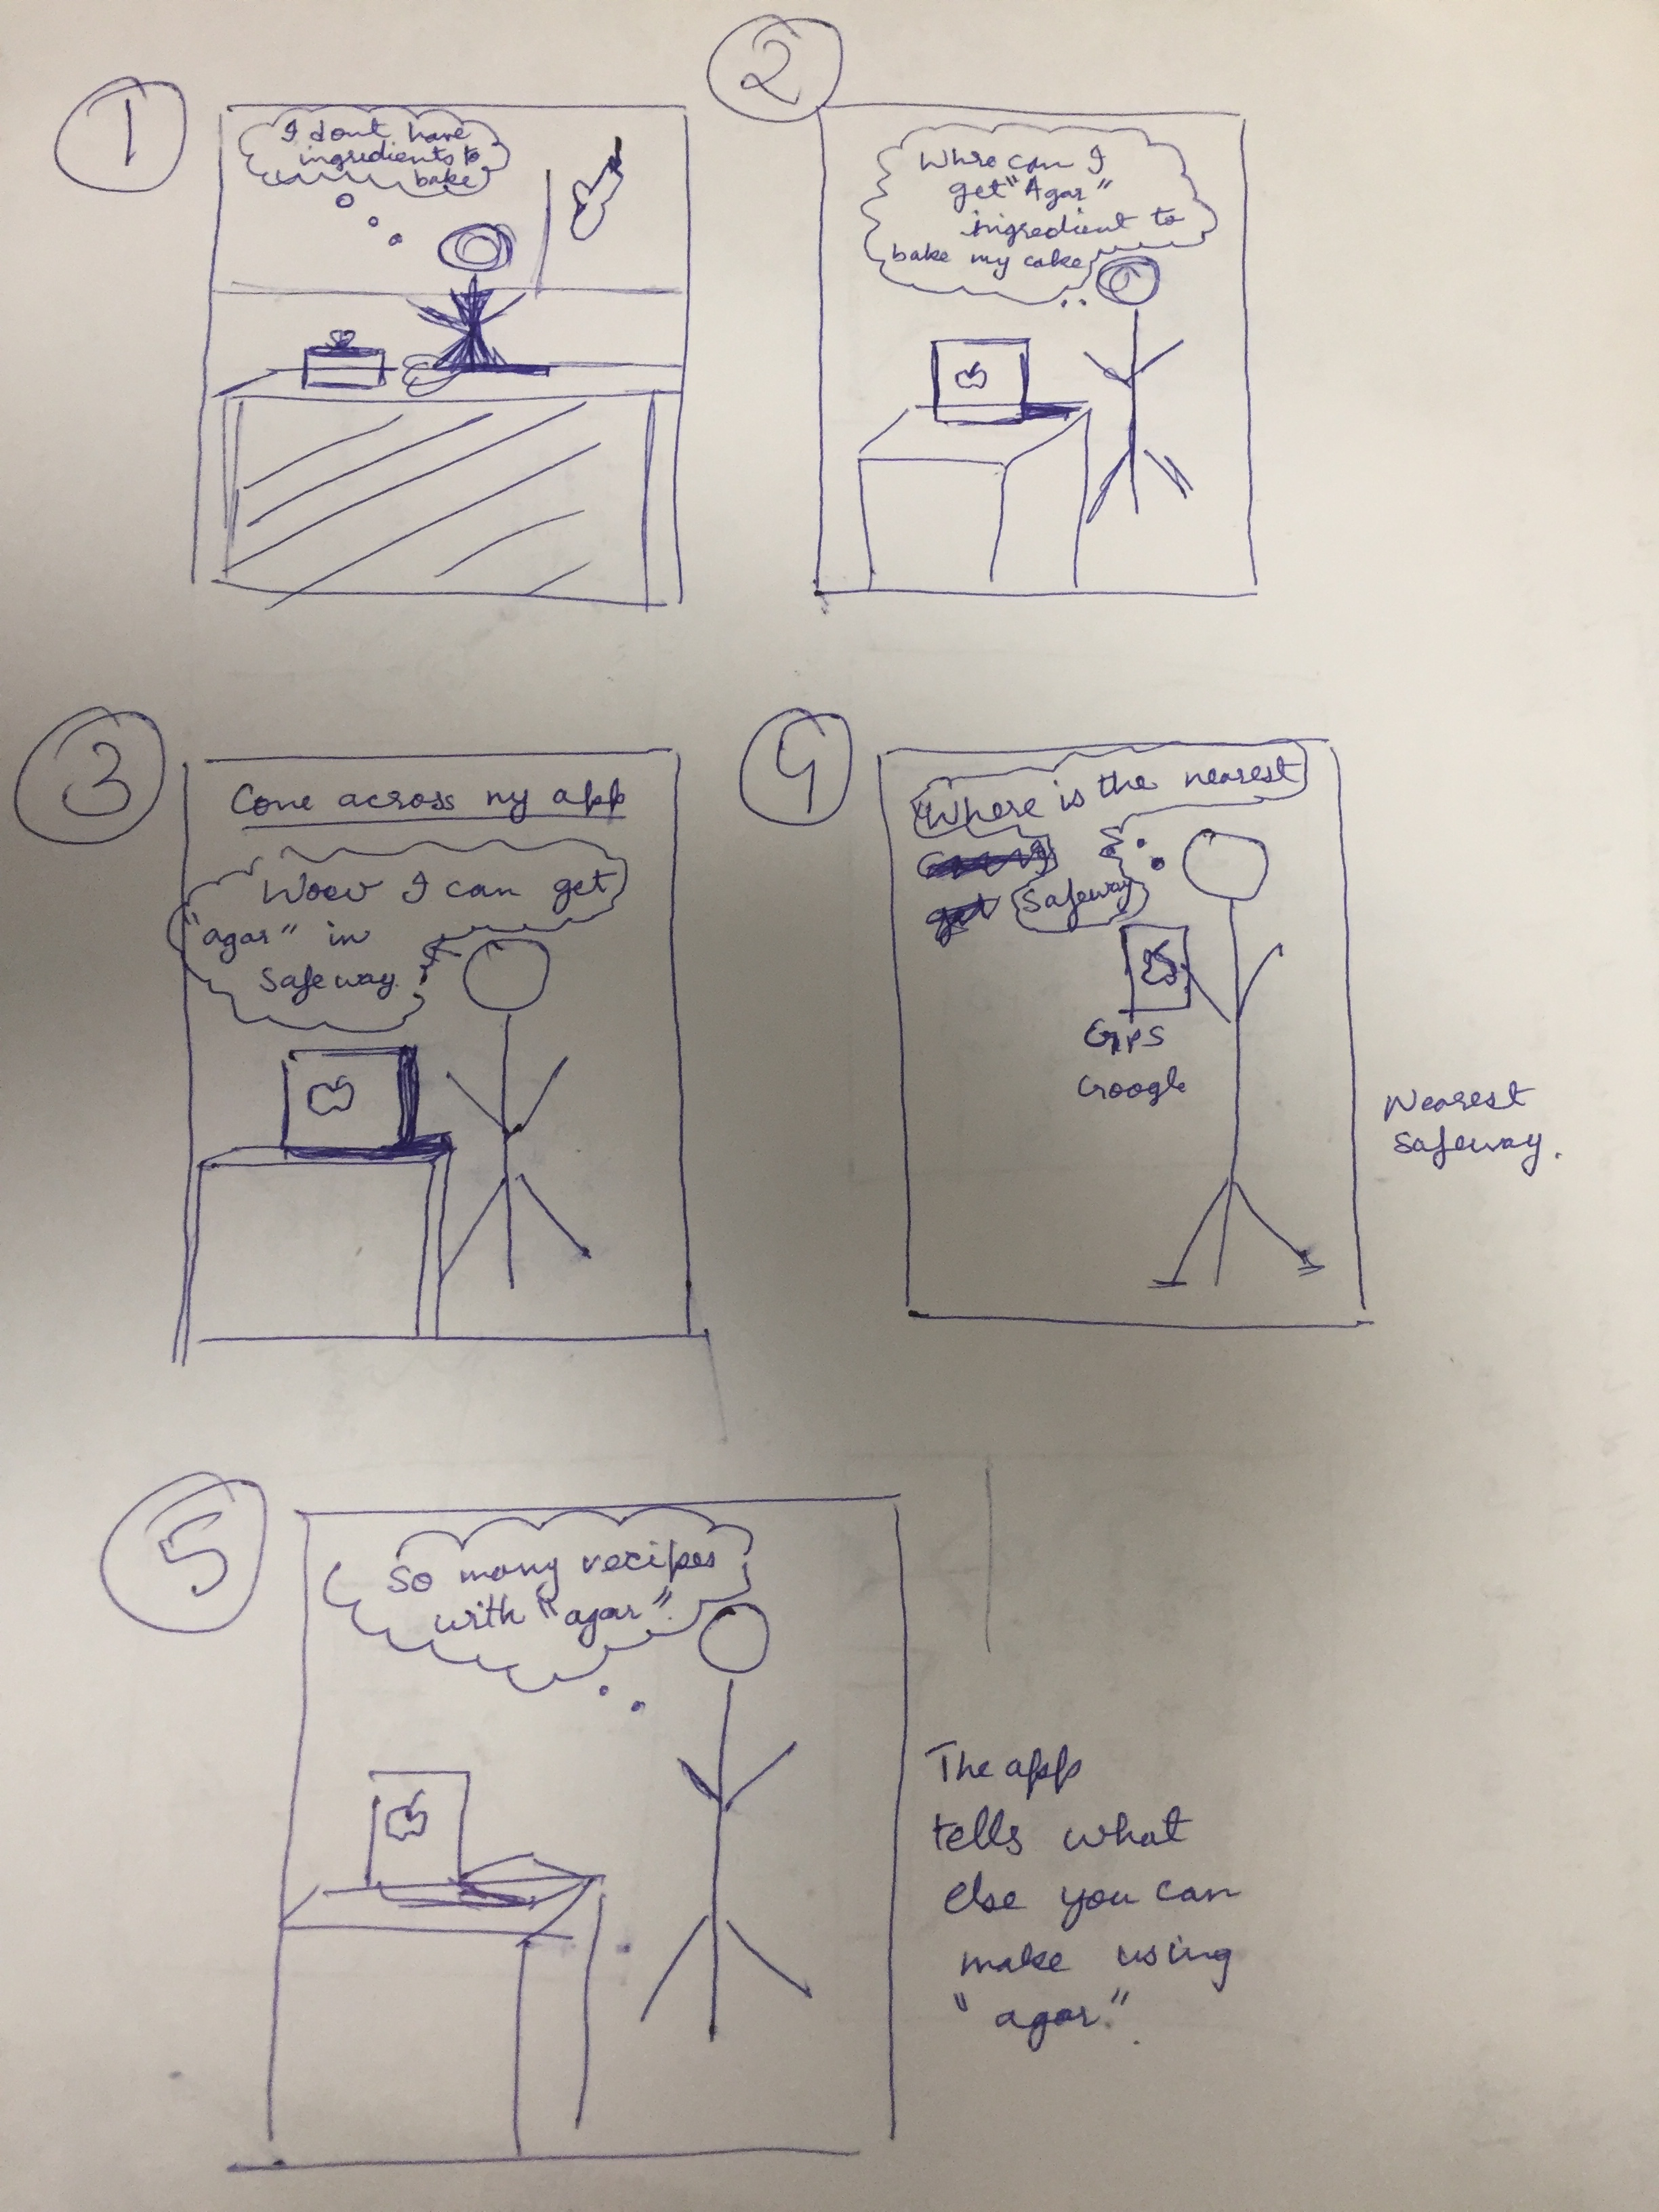 1
I dont have
ingredients to
bake
2
Whre can I
get "Agar"
ingredient to
bake my cake
3
Come across my app
Woow I can get
"agar" in
Safeway.
4
"Where is the nearest
Safeway
GPS
Google
Nearest
Safeway.
5
So many recipes
with "agar".
The app
tells what
else you can
make using
"agar".